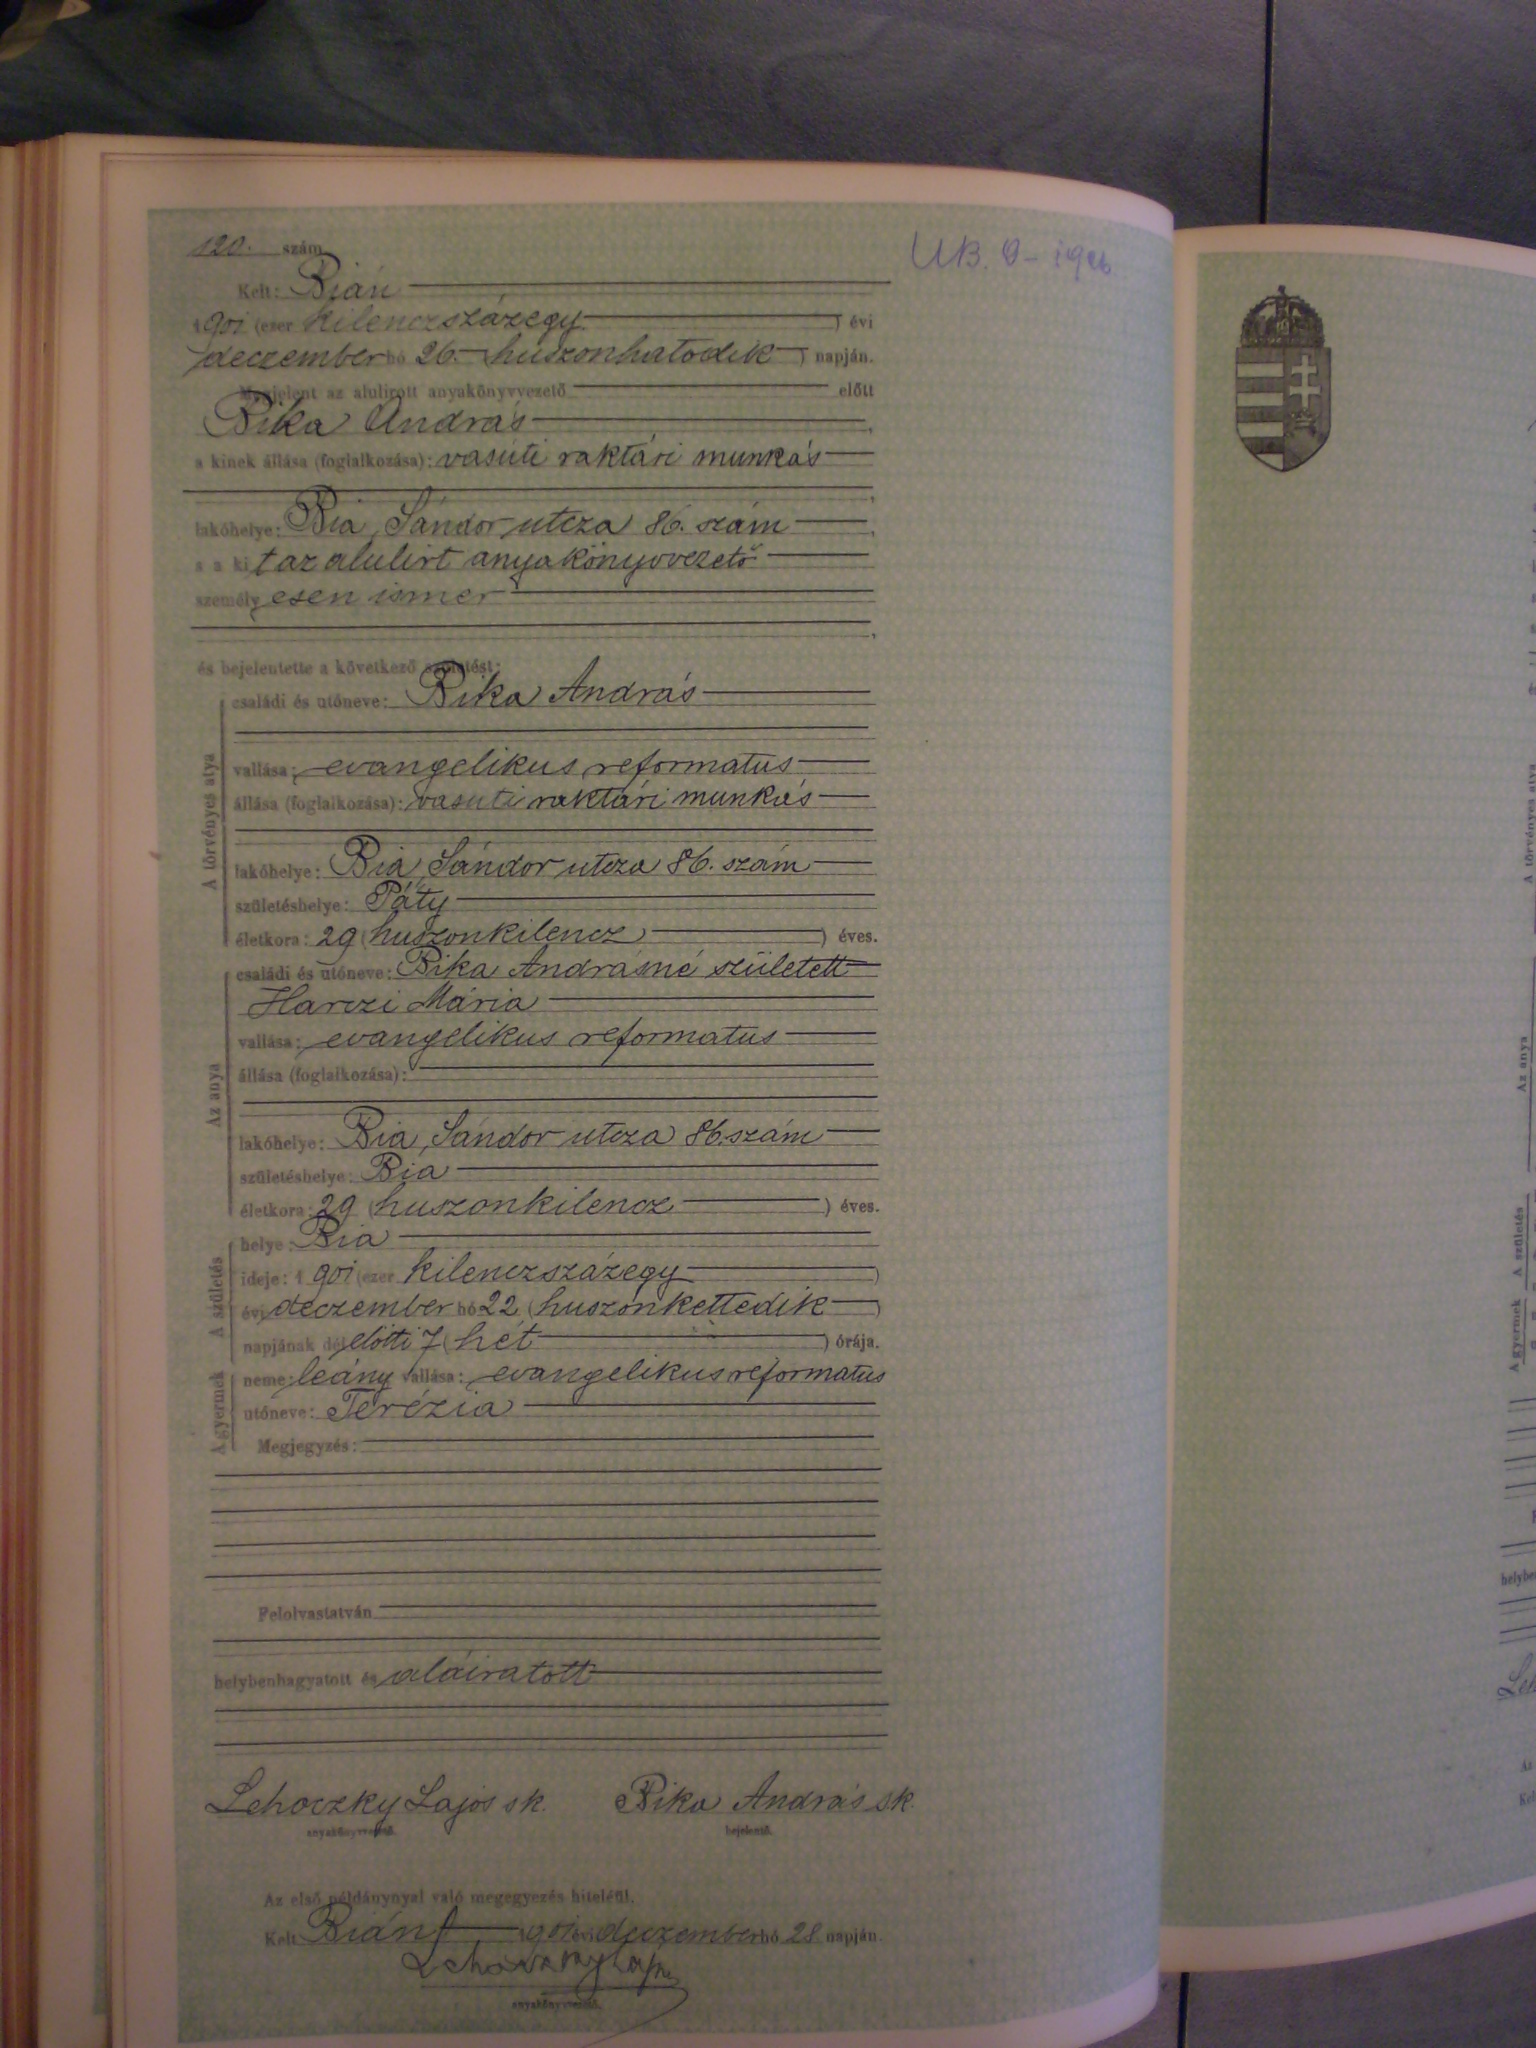 120. szám
UB. 9-1926
Kelt: Bián
1901 (ezer kilenczszázegy) évi
deczember hó 26. (huszonhatodik) napján.
Megjelent az alulirott anyakönyvvezető előtt
Bika András,
a kinek állása (foglalkozása): vasúti raktári munkás
lakóhelye: Bia, Sándor utcza 86. szám,
s a ki t az alulirt anyakönyvvezető
személyesen ismer,
és bejelentette a következő születést:
A törvényes atya
családi és utóneve: Bika András
vallása: evangelikus reformatus
állása (foglalkozása): vasuti raktári munkás
lakóhelye: Bia, Sándor utcza 86. szám
születéshelye: Páty
életkora: 29 (huszonkilencz) éves.
Az anya
családi és utóneve: Bika Andrásné született
Harczi Mária
vallása: evangelikus reformatus
állása (foglalkozása):
lakóhelye: Bia, Sándor utcza 86. szám
születéshelye: Bia
életkora: 29 (huszonkilencz) éves.
A születés
helye: Bia
ideje: 1901 (ezer kilenczszázegy)
évi deczember hó 22 (huszonkettedik)
napjának délelőtti 7 (hét) órája.
A gyermek
neme: leány vallása: evangelikus reformatus
utóneve: Terézia
Megjegyzés:
Felolvastatván
helybenhagyatott és aláiratott
Lehoczky Lajos sk. Bika András sk.
anyakönyvvezető. bejelentő.
Az első példánynyal való megegyezés hiteléül.
Kelt Bián 1901 évi deczember hó 28 napján.
Lehoczky Lajos
anyakönyvvezető.
A törvényes atya
Az anya
A születés
A gyermek